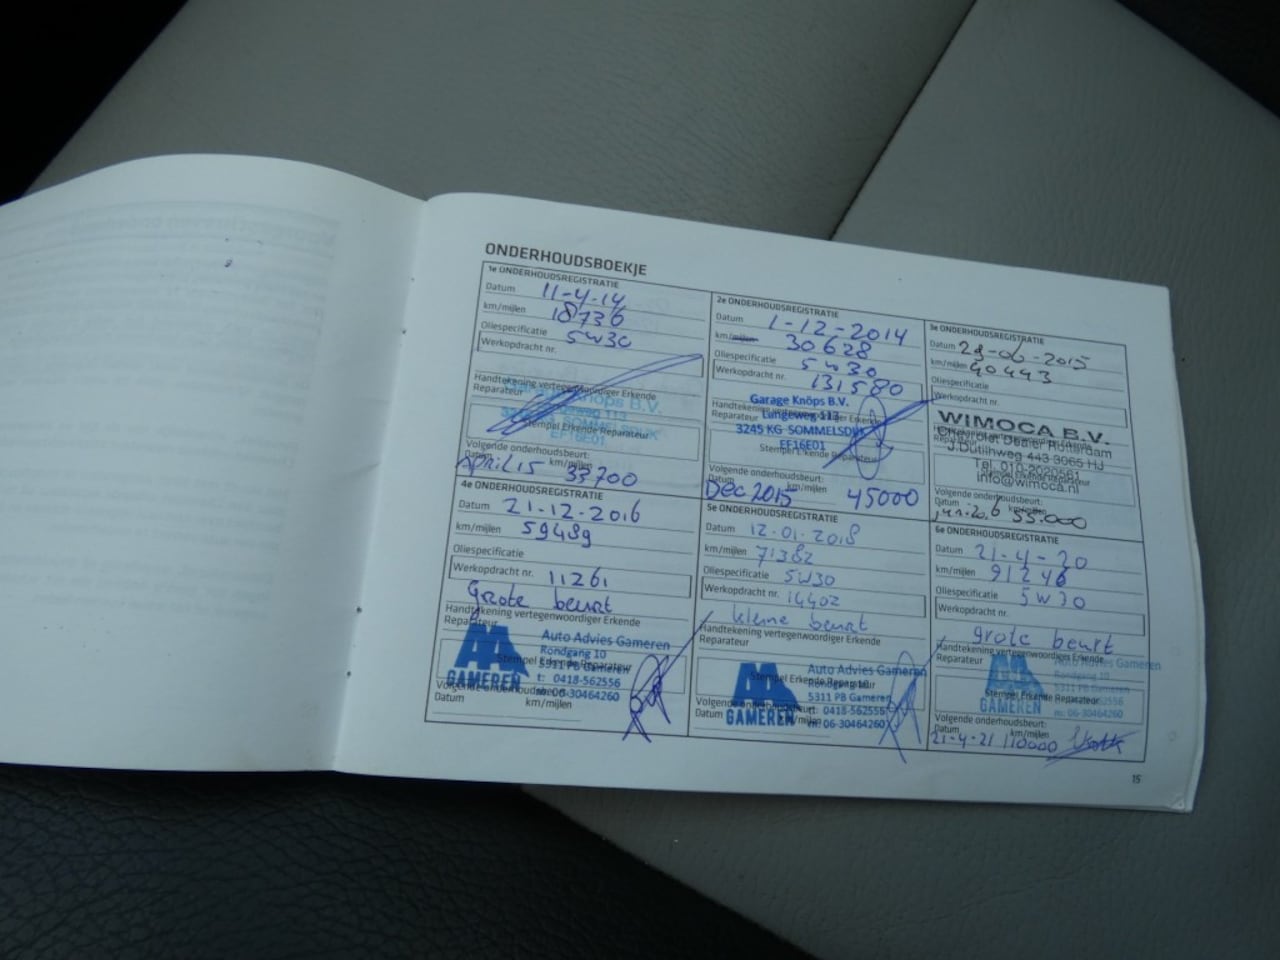 ONDERHOUDSBOEKJE
1e ONDERHOUDSREGISTRATIE
Datum 11-4-14
km/mijlen 18736
Oliespecificatie 5W30
Werkopdracht nr.
Handtekening vertegenwoordiger Erkende
Reparateur
Knöps B.V.
SOMMELSDIJK
EF16E01
Stempel Erkende Reparateur
Volgende onderhoudsbeurt:
Datum km/mijlen
April 15 33700
2e ONDERHOUDSREGISTRATIE
Datum 1-12-2014
km/mijlen 30628
Oliespecificatie 5w30
Werkopdracht nr. 131580
Garage Knöps B.V.
Handtekening vertegenwoordiger Erkende
Reparateur
Langeweg 113
3245 KG SOMMELSDIJK
EF16E01
Stempel Erkende Reparateur
Volgende onderhoudsbeurt:
Datum km/mijlen
Dec 2015 45000
3e ONDERHOUDSREGISTRATIE
Datum 23-06-2015
km/mijlen 40443
Oliespecificatie
Werkopdracht nr.
WIMOCA B.V.
Chevrolet Dealer Rotterdam
J.Dutilhweg 443 3065 HJ
Tel. 010-2020561
info@wimoca.nl
Volgende onderhoudsbeurt:
55.000
4e ONDERHOUDSREGISTRATIE
Datum 21-12-2016
km/mijlen 59489
Oliespecificatie
Werkopdracht nr. 11261
Grote beurt
Handtekening vertegenwoordiger Erkende
Reparateur
AA GAMEREN
Auto Advies Gameren
Rondgang 10
Stempel Erkende Reparateur
5311 PB Gameren
t: 0418-562556
m: 06-30464260
Volgende onderhoudsbeurt:
Datum km/mijlen
5e ONDERHOUDSREGISTRATIE
Datum 12-01-2018
km/mijlen 71382
Oliespecificatie 5W30
Werkopdracht nr. 14402
kleine beurt
Handtekening vertegenwoordiger Erkende
Reparateur
AA GAMEREN
Auto Advies Gameren
Stempel Erkende Reparateur
Rondgang 10
5311 PB Gameren
t: 0418-562556
m: 06-30464260
Volgende onderhoudsbeurt:
Datum km/mijlen
6e ONDERHOUDSREGISTRATIE
Datum 21-4-20
km/mijlen 91246
Oliespecificatie 5W30
Werkopdracht nr.
grote beurt
Handtekening vertegenwoordiger Erkende
Reparateur
AA GAMEREN
Auto Advies Gameren
Rondgang 10
5311 PB Gameren
Stempel Erkende Reparateur
m: 06-30464260
Volgende onderhoudsbeurt:
Datum km/mijlen
21-4-21 110000
15